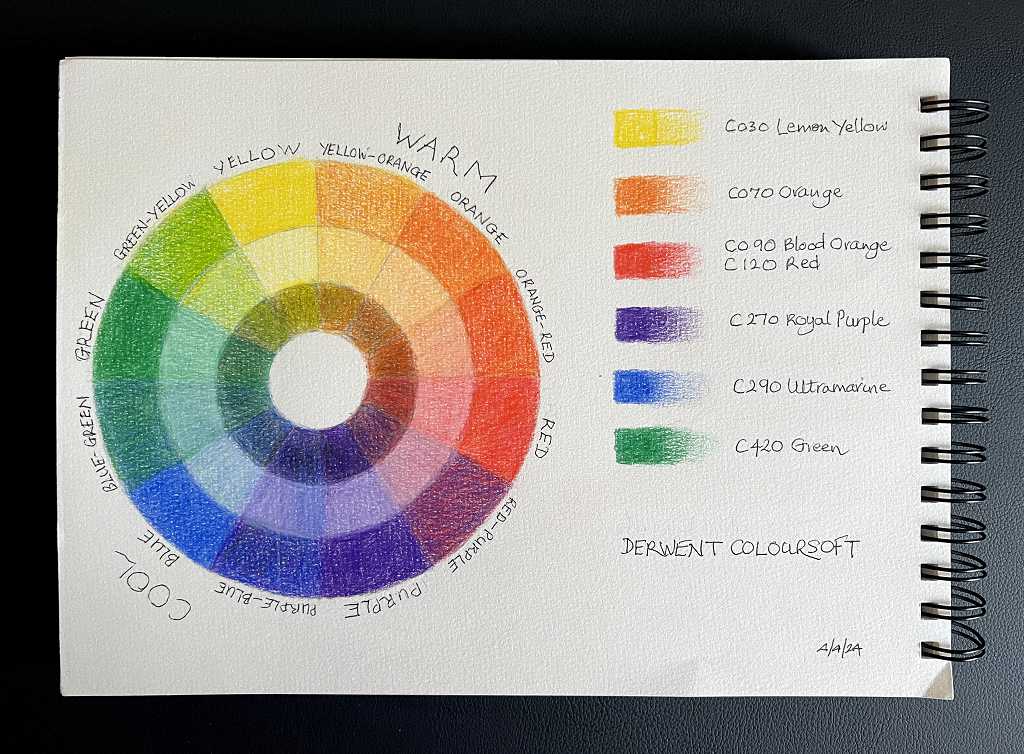 WARM
YELLOW
YELLOW-ORANGE
ORANGE
ORANGE-RED
RED
RED-PURPLE
PURPLE
PURPLE-BLUE
BLUE
COOL
BLUE-GREEN
GREEN
GREEN-YELLOW
C030 Lemon Yellow
C070 Orange
C090 Blood Orange
C120 Red
C270 Royal Purple
C290 Ultramarine
C420 Green
DERWENT COLOURSOFT
4/4/24